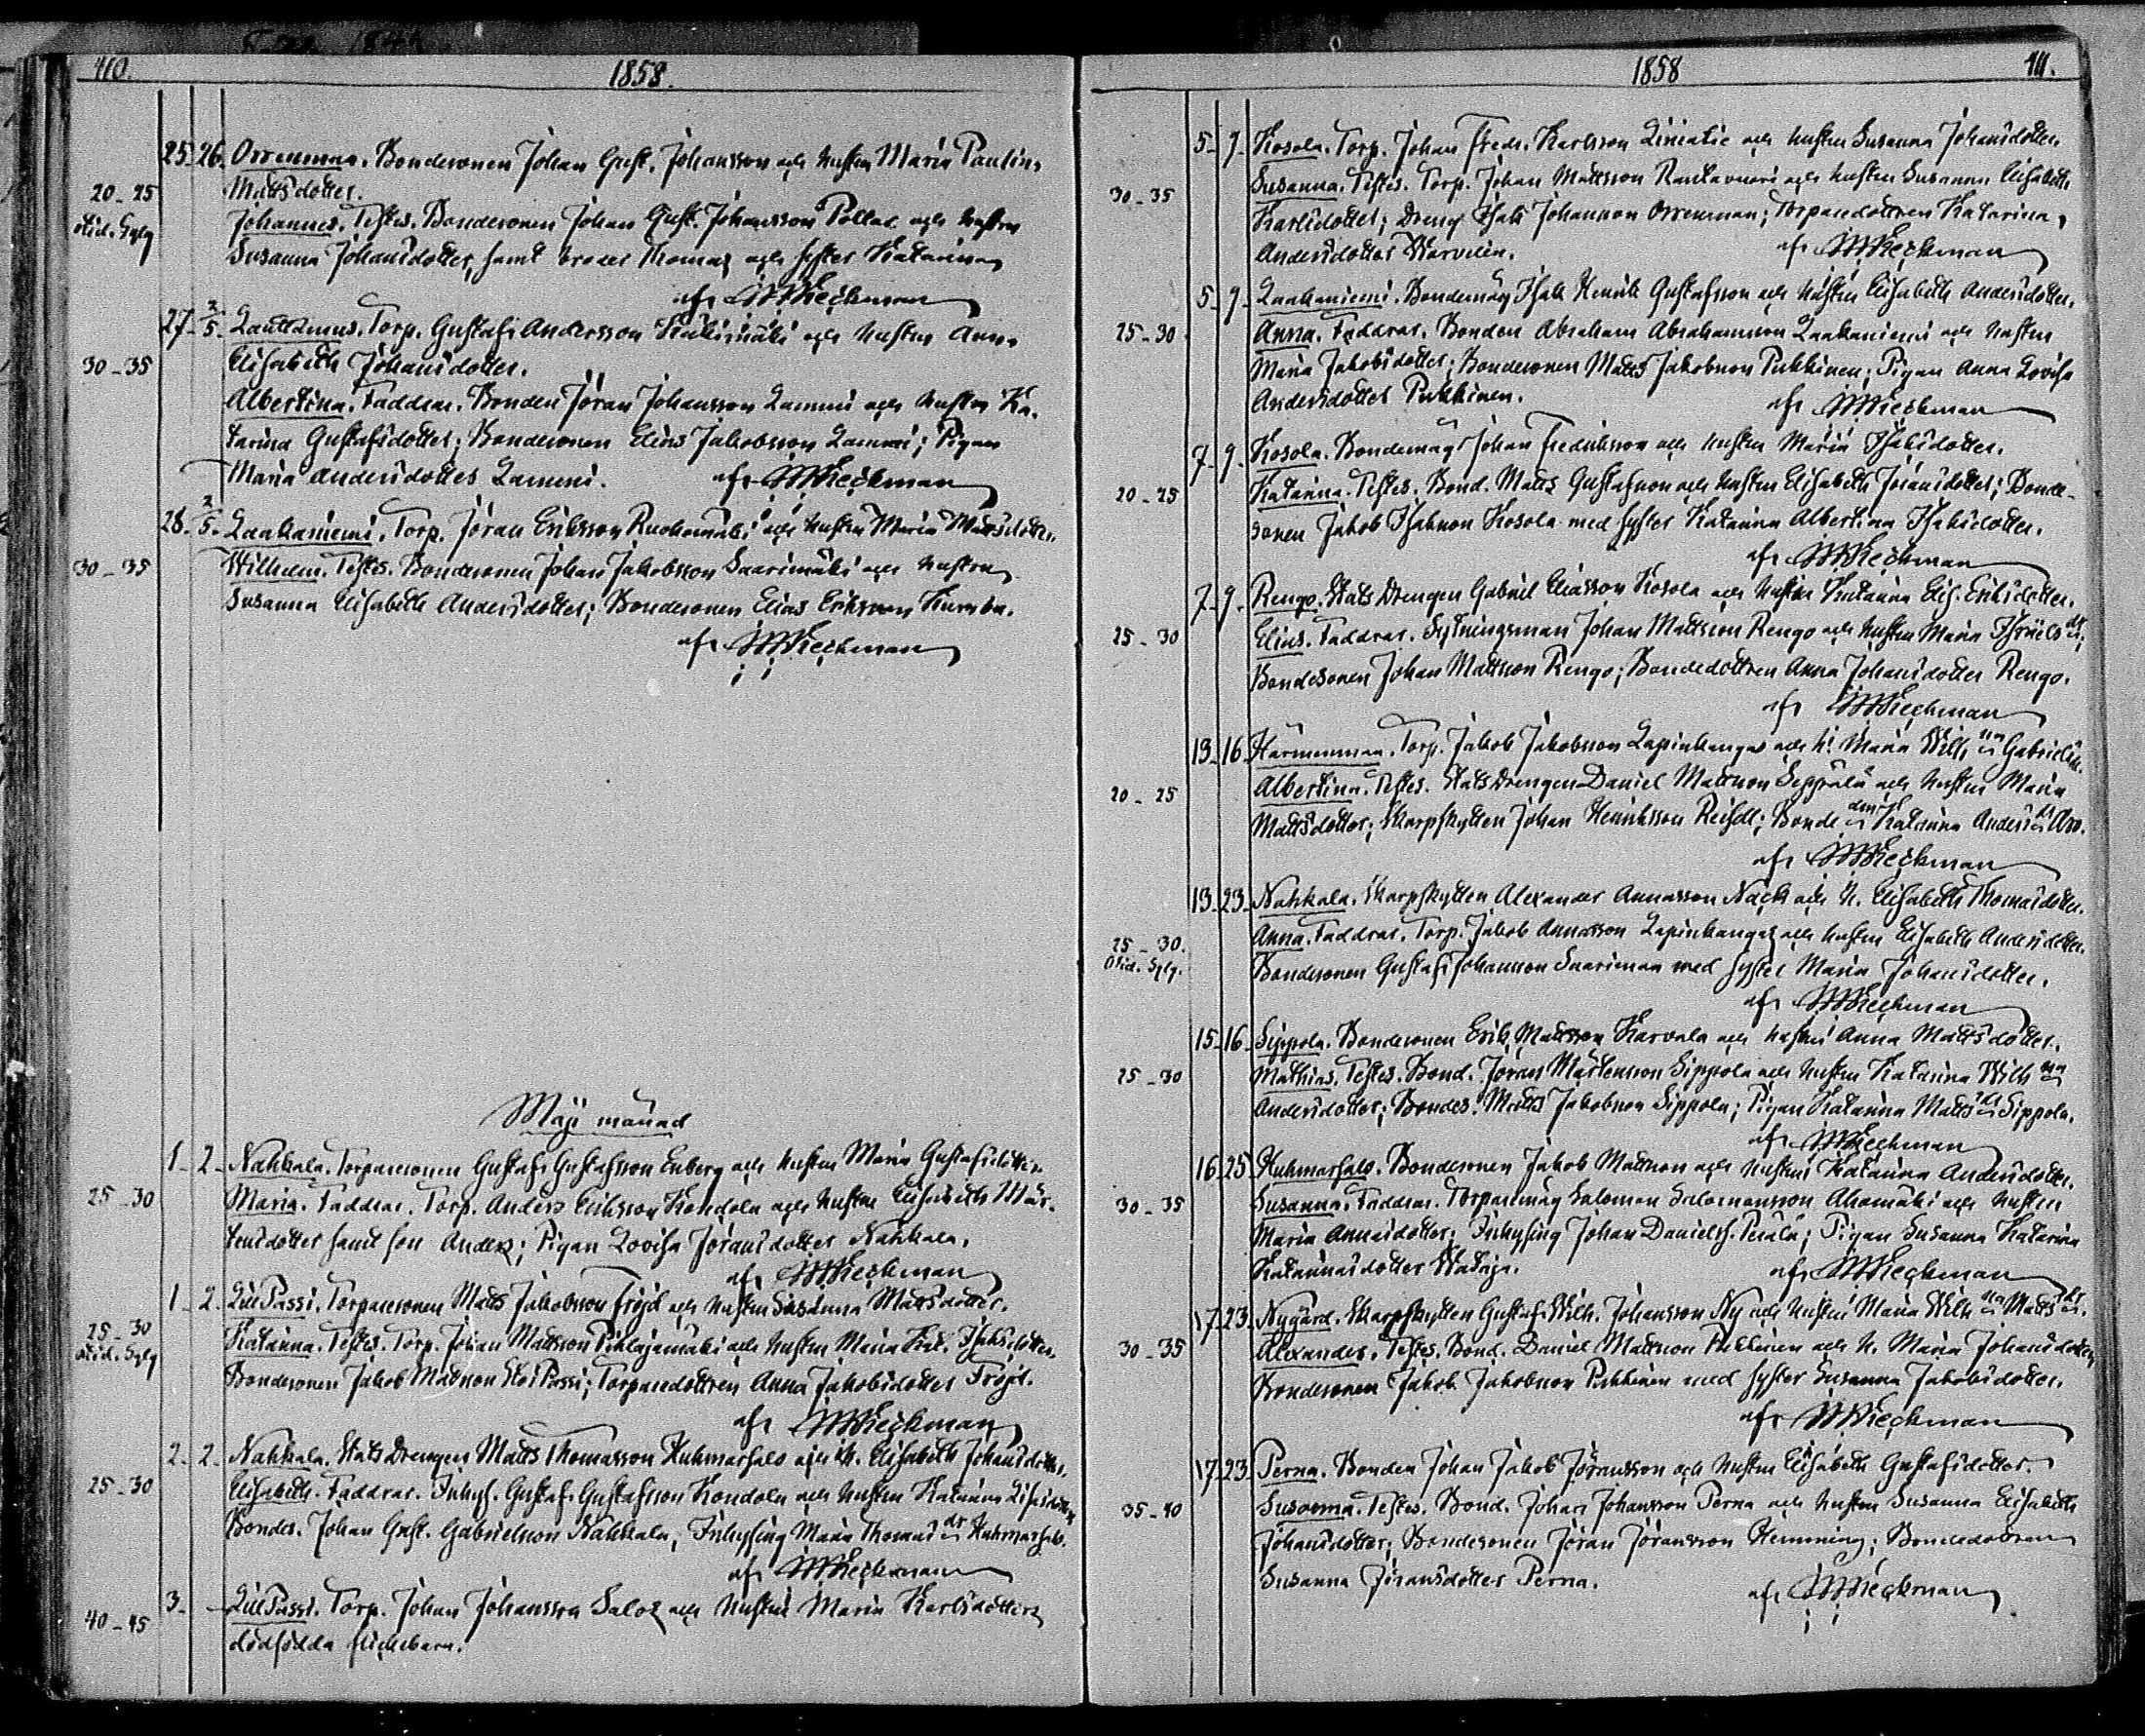 410.
1858.
25. 26. Orrenmaa. Bondesonen Johan Gust. Johansson och hustru Maria Paulin.
20-25 Mattsdotter.
otid. Gglg Johannes. Testes. Bondesonen Johan Gust. Johansson Pollar och hustru
Susanna Johansdotter, samt broder Thomas och syster Katarina
afr WKeckman
27. 2/5. Lauttamus. Torp. Gustaf Andersson Kukimäki och hustru Anna
30-35 Elisabeth Johansdotter.
Albertina. Faddrar. Bonden Jöran Johansson Lammi och hustru Ka-
tarina Gustafsdotter; Bondesonen Elias Jakobsson Lammi; Pigan
Maria Andersdotter Lammi. afr WKeckman
28. 2/5. Laakaniemi. Torp. Jöran Eriksson Ruohomäki och hustru Maria Mattsdotter.
30-35 Wilhelm. Testes. Bondesonen Johan Jakobsson Saarimäki och hustru
Susanna Elisabeth Andersdotter; Bondesonen Elias Eriksson
afr WKeckman
Maji månad
1. 2. Nahkala. Torparesonen Gustaf Gustafsson Enberg och hustru Maria Gustafsdotter.
25-30 Maria. Faddrar. Torp. Anders Eriksson Kondola och hustru Elisabeth Mår-
tensdotter samt son Anders; Pigan Lovisa Jöransdotter Nahkala.
afr WKeckman
1. 2. Lill Passi. Torparesonen Matts Jakobsson Fröjd och hustru Susanna Mattsdotter.
25-30 otid. Gglg Katarina. Testes. Torp. Johan Mattsson Pihlajamäki och hustru Maria Isaksdotter.
Bondesonen Jakob Mattsson Stor Passi; Torparedottren Anna Jakobsdotter Fröjd.
afr WKeckman
2. 2. Nahkala. Stats Drengen Matts Thomasson Kuhmarsalo och h. Elisabeth Johansdotter.
25-30 Elisabeth. Faddrar. Inhys. Gustaf Gustafsson Kondola och hustru Katarina
Bondes. Johan Gust. Gabrielsson Nahkala; Inhysing Maria Thomasdr Kuhmarsalo.
afr WKeckman
3. Lill Passi. Torp. Johan Johansson Salos och hustru Maria Karlsdotters
40-45 dödfödda flickebarn.
1858
111.
5. 9. Kosola. Torp. Johan Fredr. Karlsson Liniatie och hustru Susanna Johansdotter.
30-35 Susanna. Testes. Torp. Johan Mattsson Rantavuori och hustru Susanna Elisabeth
Karlsdotter; Dreng Isak Johansson Orrenmaa; Torparedottren Katarina
Andersdotter Warvikko. afr WKeckman
5. 9. Laakaniemi. Bondemåg Isak Henrik Gustafsson och hustru Elisabeth Andersdotter.
25-30 Anna. Faddrar. Bonden Abraham Abrahamsson Laakaniemi och hustru
Maria Jakobsdotter; Bondesonen Matts Jakobsson Pukkinen; Pigan Anna Lovisa
Andersdotter Pukkinen. afr WKeckman
7. 9. Kosola. Bondemåg Johan Fredriksson och hustru Maria Isaksdotter.
20-25 Katarina. Testes. Bond. Matts Gustafsson och hustru Elisabeth Jöransdotter; Bonde-
sonen Jakob Isaksson Kosola med syster Katarina Albertina Isaksdotter.
afr WKeckman
7. 9. Rengo. Stats Drengen Gabriel Eliasson Kosola och hustru Katarina Elis. Eriksdotter.
25-30 Elias. Faddrar. Sytningsman Johan Mattsson Rengo och hustru Maria Israelsdr;
Bondesonen Johan Mattsson Rengo; Bondedottren Anna Johansdotter Rengo.
afr WKeckman
13. 16. Härmänmaa. Torp. Jakob Jakobsson Lapinkangas och h. Maria Wilhna Gabrielsdr.
20-25 Albertina. Testes. Stats Drengen Daniel Mattsson Seppälä och hustru Maria
Mattsdotter; Skarpskytten Johan Henriksson Reisell; Bondedrn Katarina Andersdr Aro.
afr WKeckman
13. 23. Nahkala. Skarpskytten Alexander Annasson Näck och h. Elisabeth Thomasdotter.
25-30. Otid. Gglg. Anna. Faddrar. Torp. Jakob Annasson Lapinkangas och hustru Elisabeth Andersdotter.
Bondesonen Gustaf Johansson Saarimaa med syster Maria Johansdotter.
afr WKeckman
15. 16. Sippola. Bondesonen Erik Mattsson Karvala och hustru Anna Mattsdotter.
25-30 Mathias. Testes. Bond. Jöran Mårtensson Sippola och hustru Katarina Wilhna
Andersdotter; Bondes. Matts Jakobsson Sippola; Pigan Katarina Mattsdr Sippola.
afr WKeckman
16. 25. Kuhmarsalo. Bondesonen Jakob Mattsson och hustru Katarina Andersdotter.
30-35 Susanna. Faddrar. Torparemåg Salomon Salomonsson Ahomäki och hustru
Maria Annasdotter; Inhysing Johan Daniels. Perälä; Pigan Susanna Katarina
Katarinasdotter Kataja. afr WKeckman
17. 23. Nygård. Skarpskytten Gustaf Wilh. Johansson Ny och hustru Maria Wilhna Mattsdr.
30-35 Alexander. Testes. Bond. Daniel Mattsson Pukkinen och h. Maria Johansdotter
Bondesonen Jakob Jakobsson Pukkinen med syster Susanna Jakobsdotter.
afr WKeckman
17. 23. Perna. Bonden Johan Jakob Jöransson och hustru Elisabeth Gustafsdotter.
35-40 Susanna. Testes. Bond. Johan Johansson Perna och hustru Susanna Elisabeth
Johansdotter; Bondesonen Jöran Jöransson Hemming; Bondedottren
Susanna Jöransdotter Perna. afr WKeckman